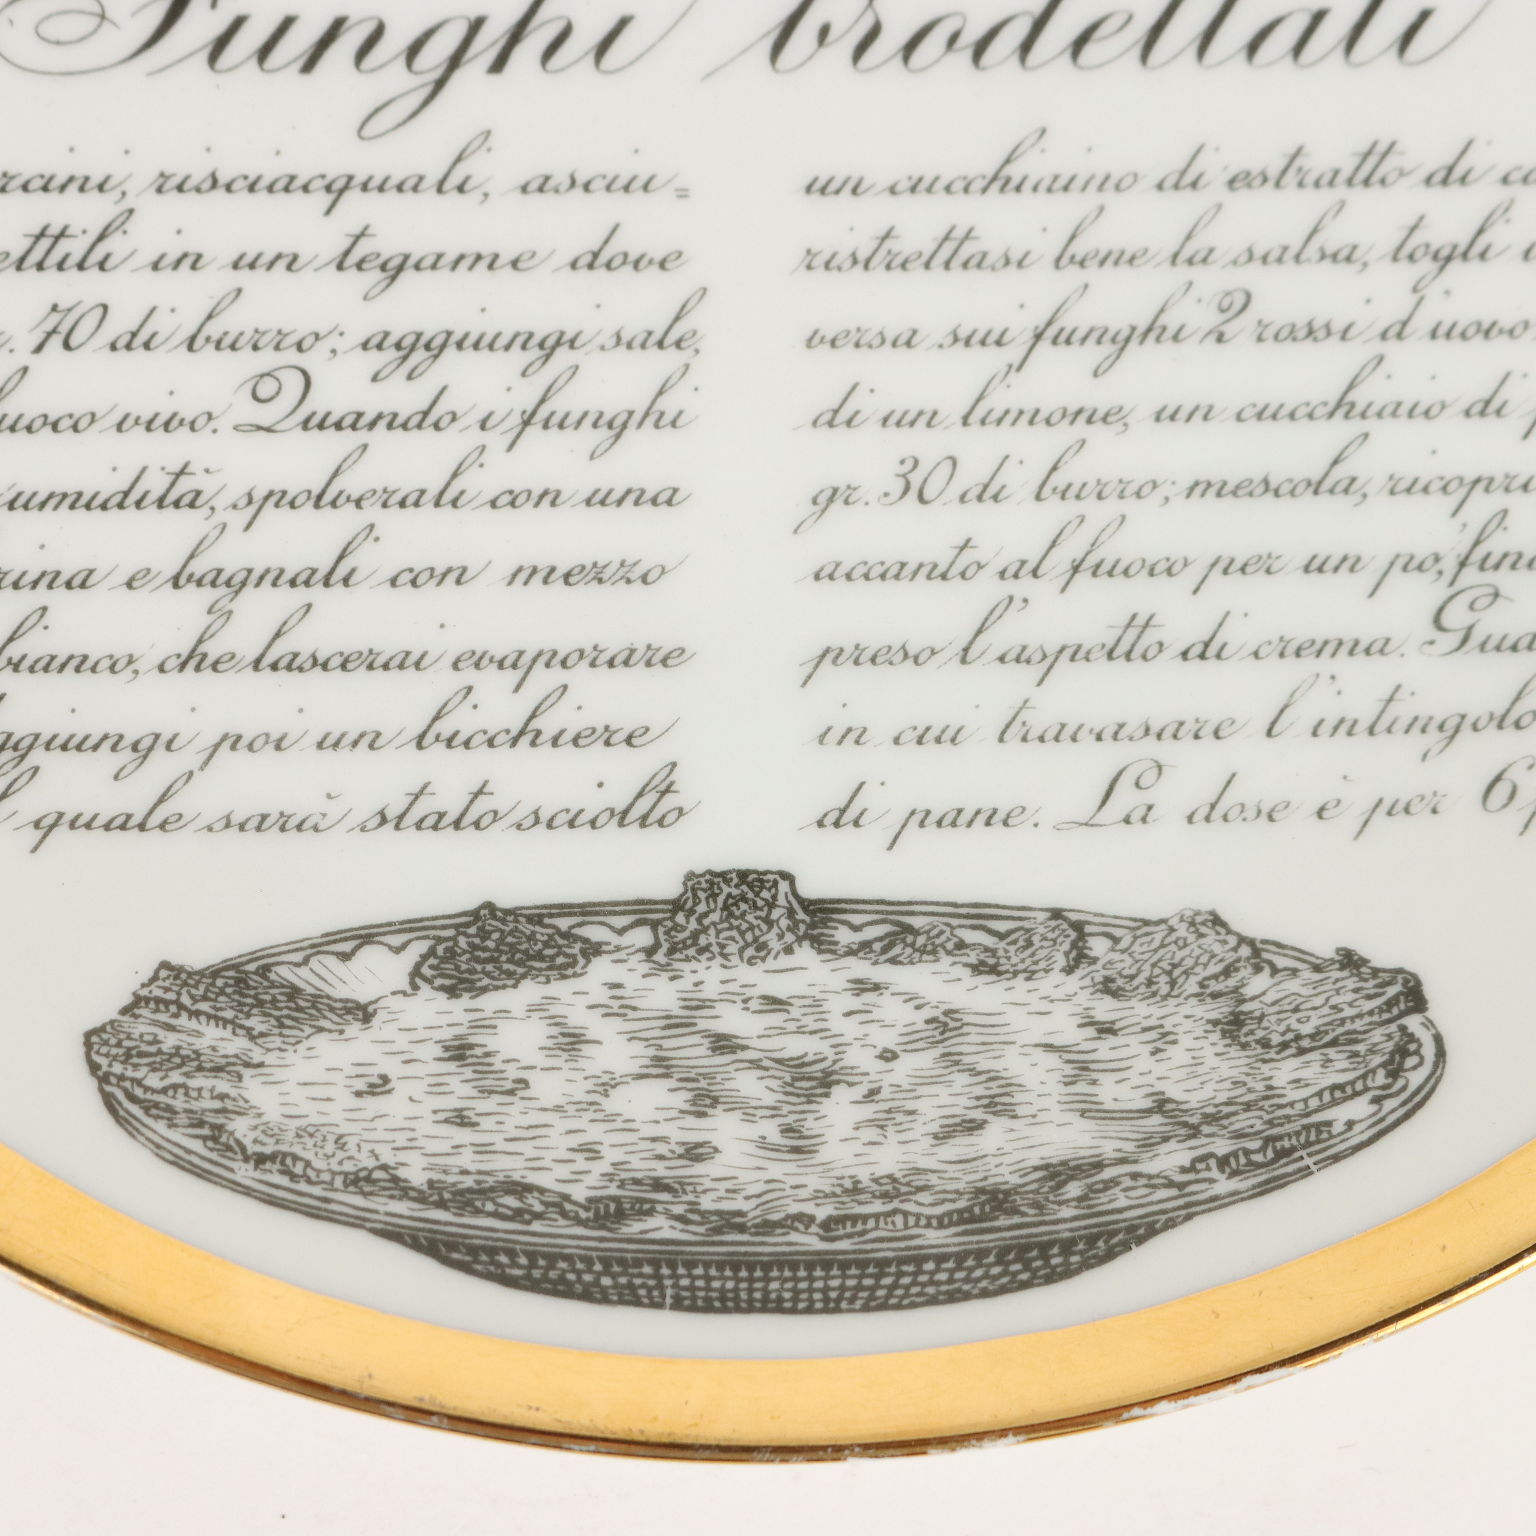 Funghi brodettati
rcini, risciacquali, asciu=
ettili in un tegame dove
r. 70 di burro; aggiungi sale,
uoco vivo. Quando i funghi
umidità, spolverali con una
rina e bagnali con mezzo
bianco, che lascerai evaporare
ggiungi poi un bicchiere
l quale sarà stato sciolto
un cucchiaino di estratto di ca
ristrettasi bene la salsa, togli
versa sui funghi 2 rossi d'uovo
di un limone, un cucchiaio di
gr. 30 di burro; mescola, ricopri
accanto al fuoco per un pò, fin
preso l'aspetto di crema. Gua
in cui travasare l'intingolo
di pane. La dose è per 6